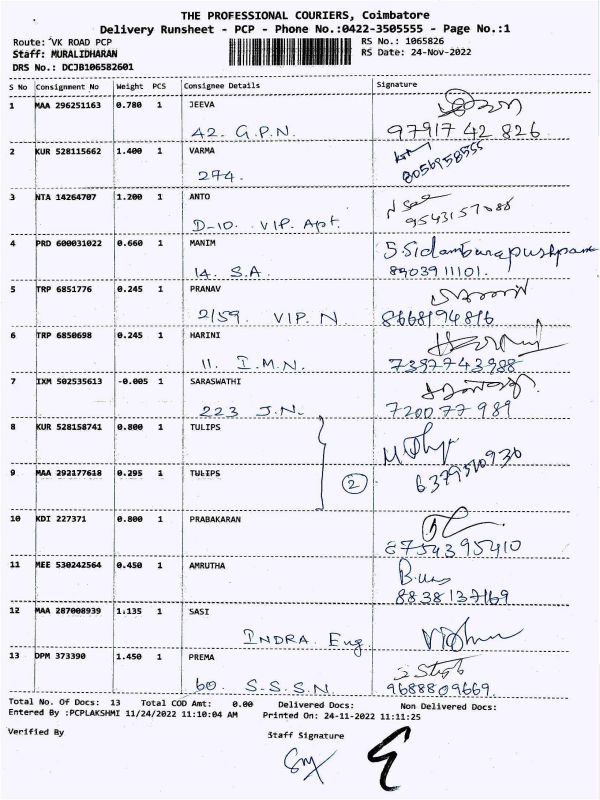 THE PROFESSIONAL COURIERS, Coimbatore
Delivery Runsheet - PCP - Phone No.:0422-3505555 - Page No.:1
Route: VK ROAD PCP
RS No.: 1065826
Staff: MURALIDHARAN
RS Date: 24-Nov-2022
DRS No.: DCJB106582601
S No Consignment No Weight PCS Consignee Details Signature
1 MAA 296251163 0.780 1 JEEVA
42. G.P.N. 97917 42 826
2 KUR 528115662 1.400 1 VARMA
274. 8056958555
3 NTA 14264707 1.200 1 ANTO
D-10. VIP. Apt. 9543157088
4 PRD 600031022 0.660 1 MANIM
14. S.A. 8903911101.
5 TRP 6851776 0.245 1 PRANAV
2/59. VIP. N 8668194816
6 TRP 6850698 0.245 1 HARINI
11. I.M.N. 7392743988
7 IXM 502535613 -0.005 1 SARASWATHI
223 J.N. 720077989
8 KUR 528158741 0.800 1 TULIPS
9 MAA 292177618 0.295 1 TULIPS
2 6379510930
10 KDI 227371 0.800 1 PRABAKARAN
8754395410
11 MEE 530242564 0.450 1 AMRUTHA
8838137169
12 MAA 287008939 1.135 1 SASI
INDRA. Eng
13 DPM 373390 1.450 1 PREMA
60. S.S.S.N. 9688809669.
Total No. Of Docs: 13 Total COD Amt: 0.00 Delivered Docs: Non Delivered Docs:
Entered By :PCPLAKSHMI 11/24/2022 11:10:04 AM Printed On: 24-11-2022 11:11:25
Verified By Staff Signature